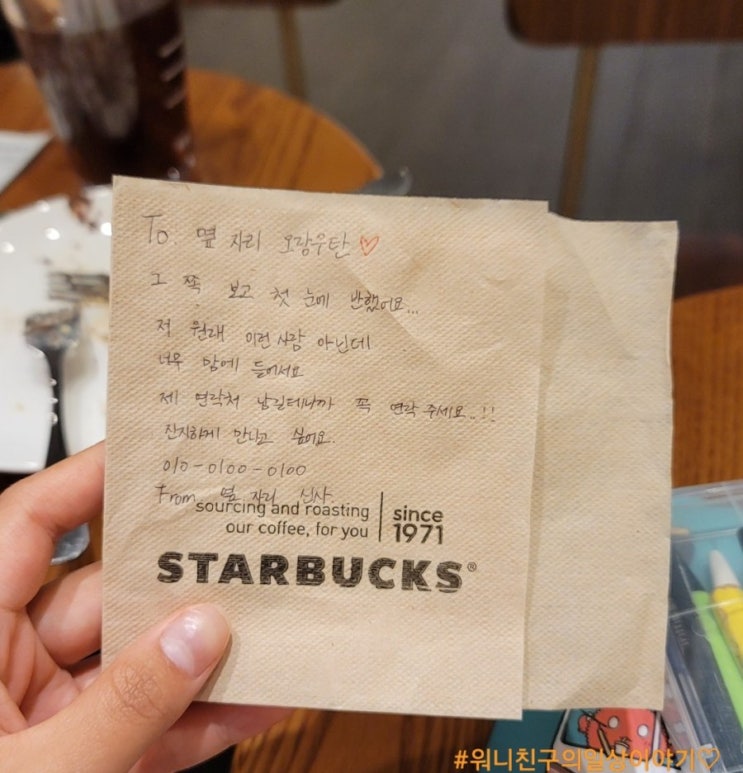 To. 옆 자리 오랑우탄♡
그 쪽 보고 첫 눈에 반했어요...
저 원래 이런 사람 아닌데
너무 맘에 들어서요
제 연락처 남길테니까 꼭 연락 주세요..!!
진지하게 만나고 싶어요.
010-0100-0100
From. 옆 자리 신사.
sourcing and roasting
our coffee, for you
since
1971
STARBUCKS®
#워니친구의일상이야기♡